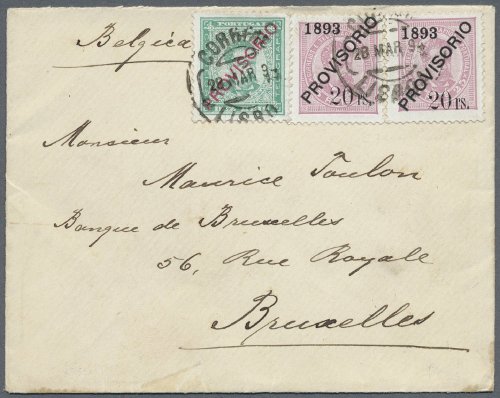 Belgica
PORTUGAL
PROVISORIO
CORREIO
28 MAR 94
LISBOA
1893
PROVISORIO
20 rs.
1893
PROVISORIO
20 rs.
28 MAR 94
LISBOA
Monsieur
Maurice Toulon
Banque de Bruxelles
56, Rue Royale
Bruxelles